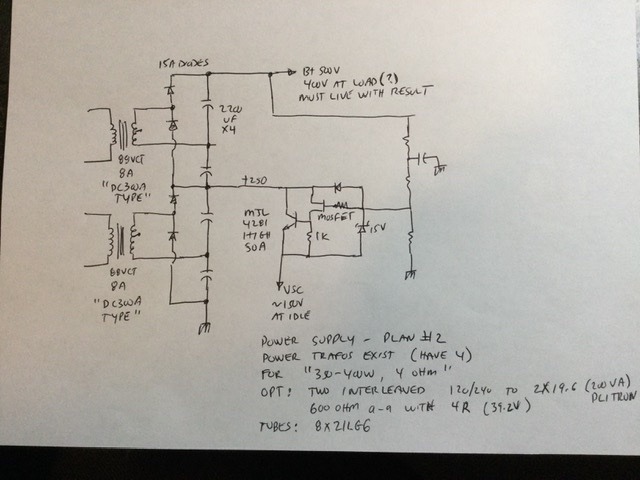 15A DIODES
B+ 500V
400V AT LOAD (?)
MUST LIVE WITH RESULT
2200
UF
X4
88VCT
8A
"DC300A
TYPE"
+250
MJL
4281
50A
MOSFET
1K
15V
68VCT
8A
"DC300A
TYPE"
VSC
~150V
AT IDLE
POWER SUPPLY - PLAN #2
POWER TRAFOS EXIST (HAVE 4)
FOR "350-400W, 4 OHM"
OPT: TWO INTERLEAVED 120/240 TO 2X19.6 (200VA)
PLITRON
600 OHM a-a WITH 4R (39.2V)
TUBES: 8X21LG6